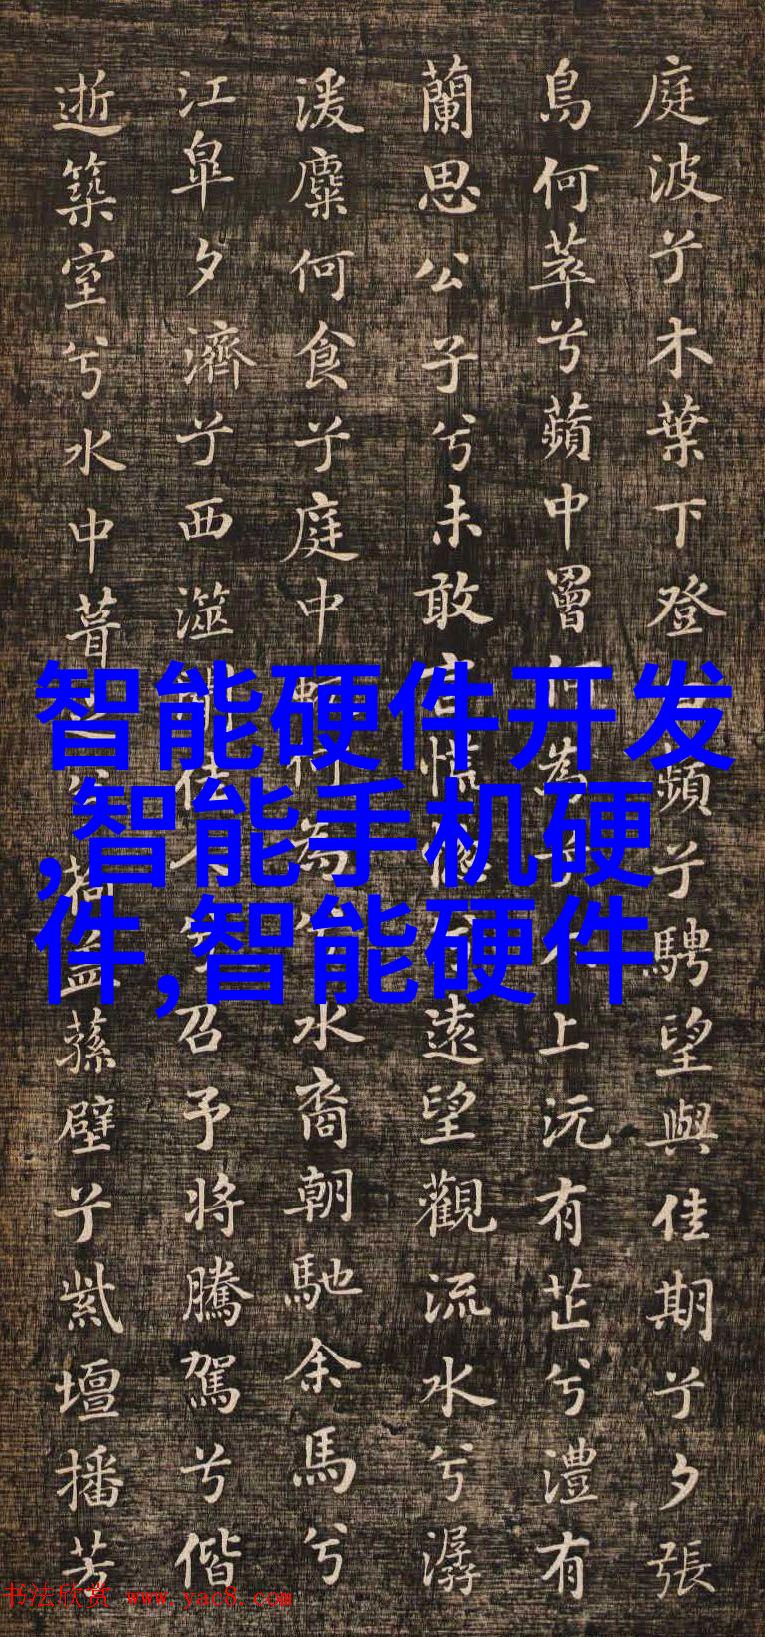 庭波兮木葉下登蘋兮騁望與佳期兮夕張
鳥何萃兮蘋中罾何為兮上沅有芷兮澧有
蘭思公子兮未敢言慌惚兮遠望觀流水兮潺
湲麋何食兮庭中蛟何為兮水裔朝馳余馬兮
江皋夕濟兮西澨聞佳人兮召予將騰駕兮偕
逝築室兮水中葺之以荷蓋蓀壁兮紫壇播芳
智能硬件开发
,智能手机硬
件,智能硬件
书法欣赏 www.yac8.com